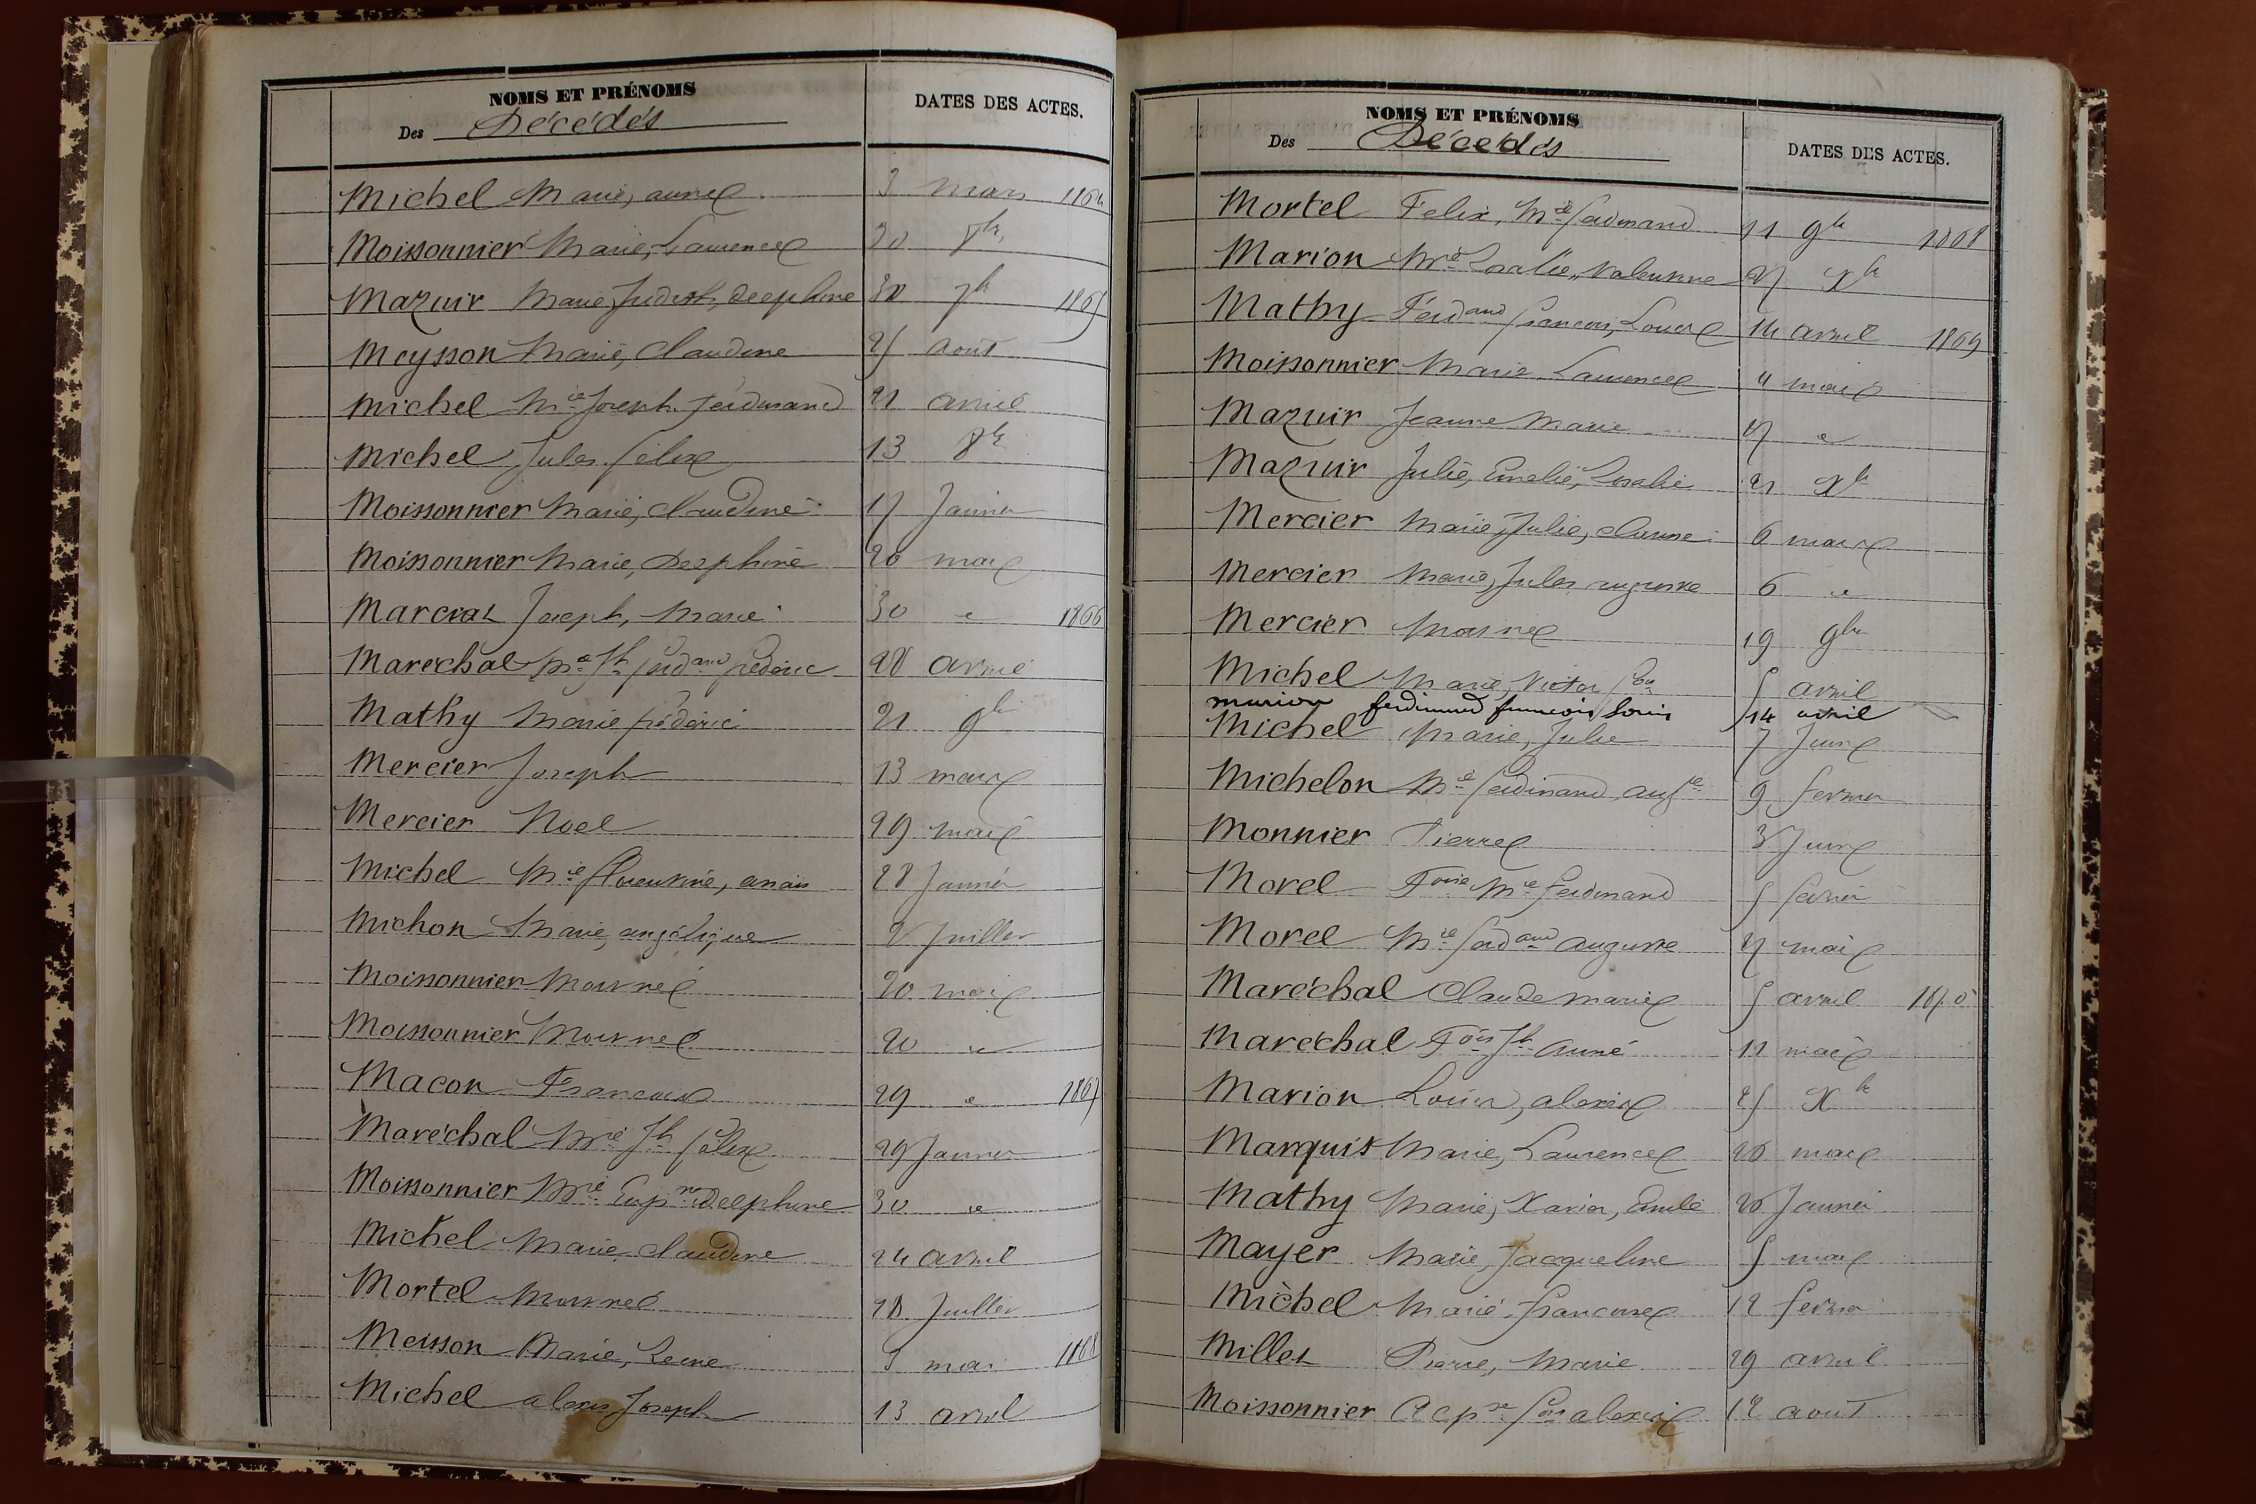 NOMS ET PRÉNOMS
Des Décédés
DATES DES ACTES.
Michel Marie, anne 3 mars 1864
Moissonnier Marie, Laurence 20 8bre
Mazuir Marie, Judith, Delphine 30 7b 1865
Meysson Marie, Claudine 25 août
Michel Mie Joseph Ferdinand 21 avril
Michel Jules Félix 13 8b
Moissonnier Marie, Claudine 17 Janvier
Moissonnier Marie, Delphine 20 mai
Marcial Joseph, Marie 30 " 1866
Maréchal Mie Jh Ferdand Fréderic 28 avril
Mathy Marie Fréderic 21 9b
Mercier Joseph 13 mars
Mercier Noel 29 mai
Michel Mie Florentine, anaïs 28 Janvier
Michon Marie, angélique 8 Juillet
Moissonnier Mort né 20 mai
Moissonnier Mort né 20 "
Macon Francois 29 " 1867
Maréchal Mie Jh Félix 29 Janvier
Moissonnier Mie Delphine 30 "
Michel Marie, Claudine 24 avril
Mortel Mort né 28 Juillet
Meisson Marie, 5 mai 1868
Michel alexis Joseph 13 avril
NOMS ET PRÉNOMS
Des Décédés
DATES DES ACTES.
Mortel Felix, Mie Ferdinand 11 9b 1868
Marion Mie Rosalie, Valentine 27 Xb
Mathy Ferdand Francois, Louis 14 avril 1869
Moissonnier Marie Laurence 4 mai
Mazuir Jeanne Marie 17 "
Mazuir Julie, Emélie, Rosalie 21 Xb
Mercier Marie, Julie, 6 mars
Mercier Marie, Jules auguste 6 "
Mercier Mort né 19 9bre
Michel Marie, Victor 5 avril
marion ferdinand francois louis 14 avril
Michel Marie, Julie 7 Juin
Michelon Mie Ferdinand, augte 9 fevrier
Monnier Pierre 3 Juin
Morel Fois Mie Ferdinand 5 fevrier
Morel Mie Ferdand auguste 27 mai
Maréchal Claude marie 5 avril 1870
Maréchal Fois Jh aimé 11 mai
Marion Louis, alexis 25 Xb
Marquis Marie, Laurence 20 mai
Mathy Marie, Xavier, Emile 20 Janvier
Mayer Marie, Jacqueline 5 mai
Michel Marie francoise 12 fevrier
Millet Pierre, Marie 29 avril
Moissonnier alexis 12 aout